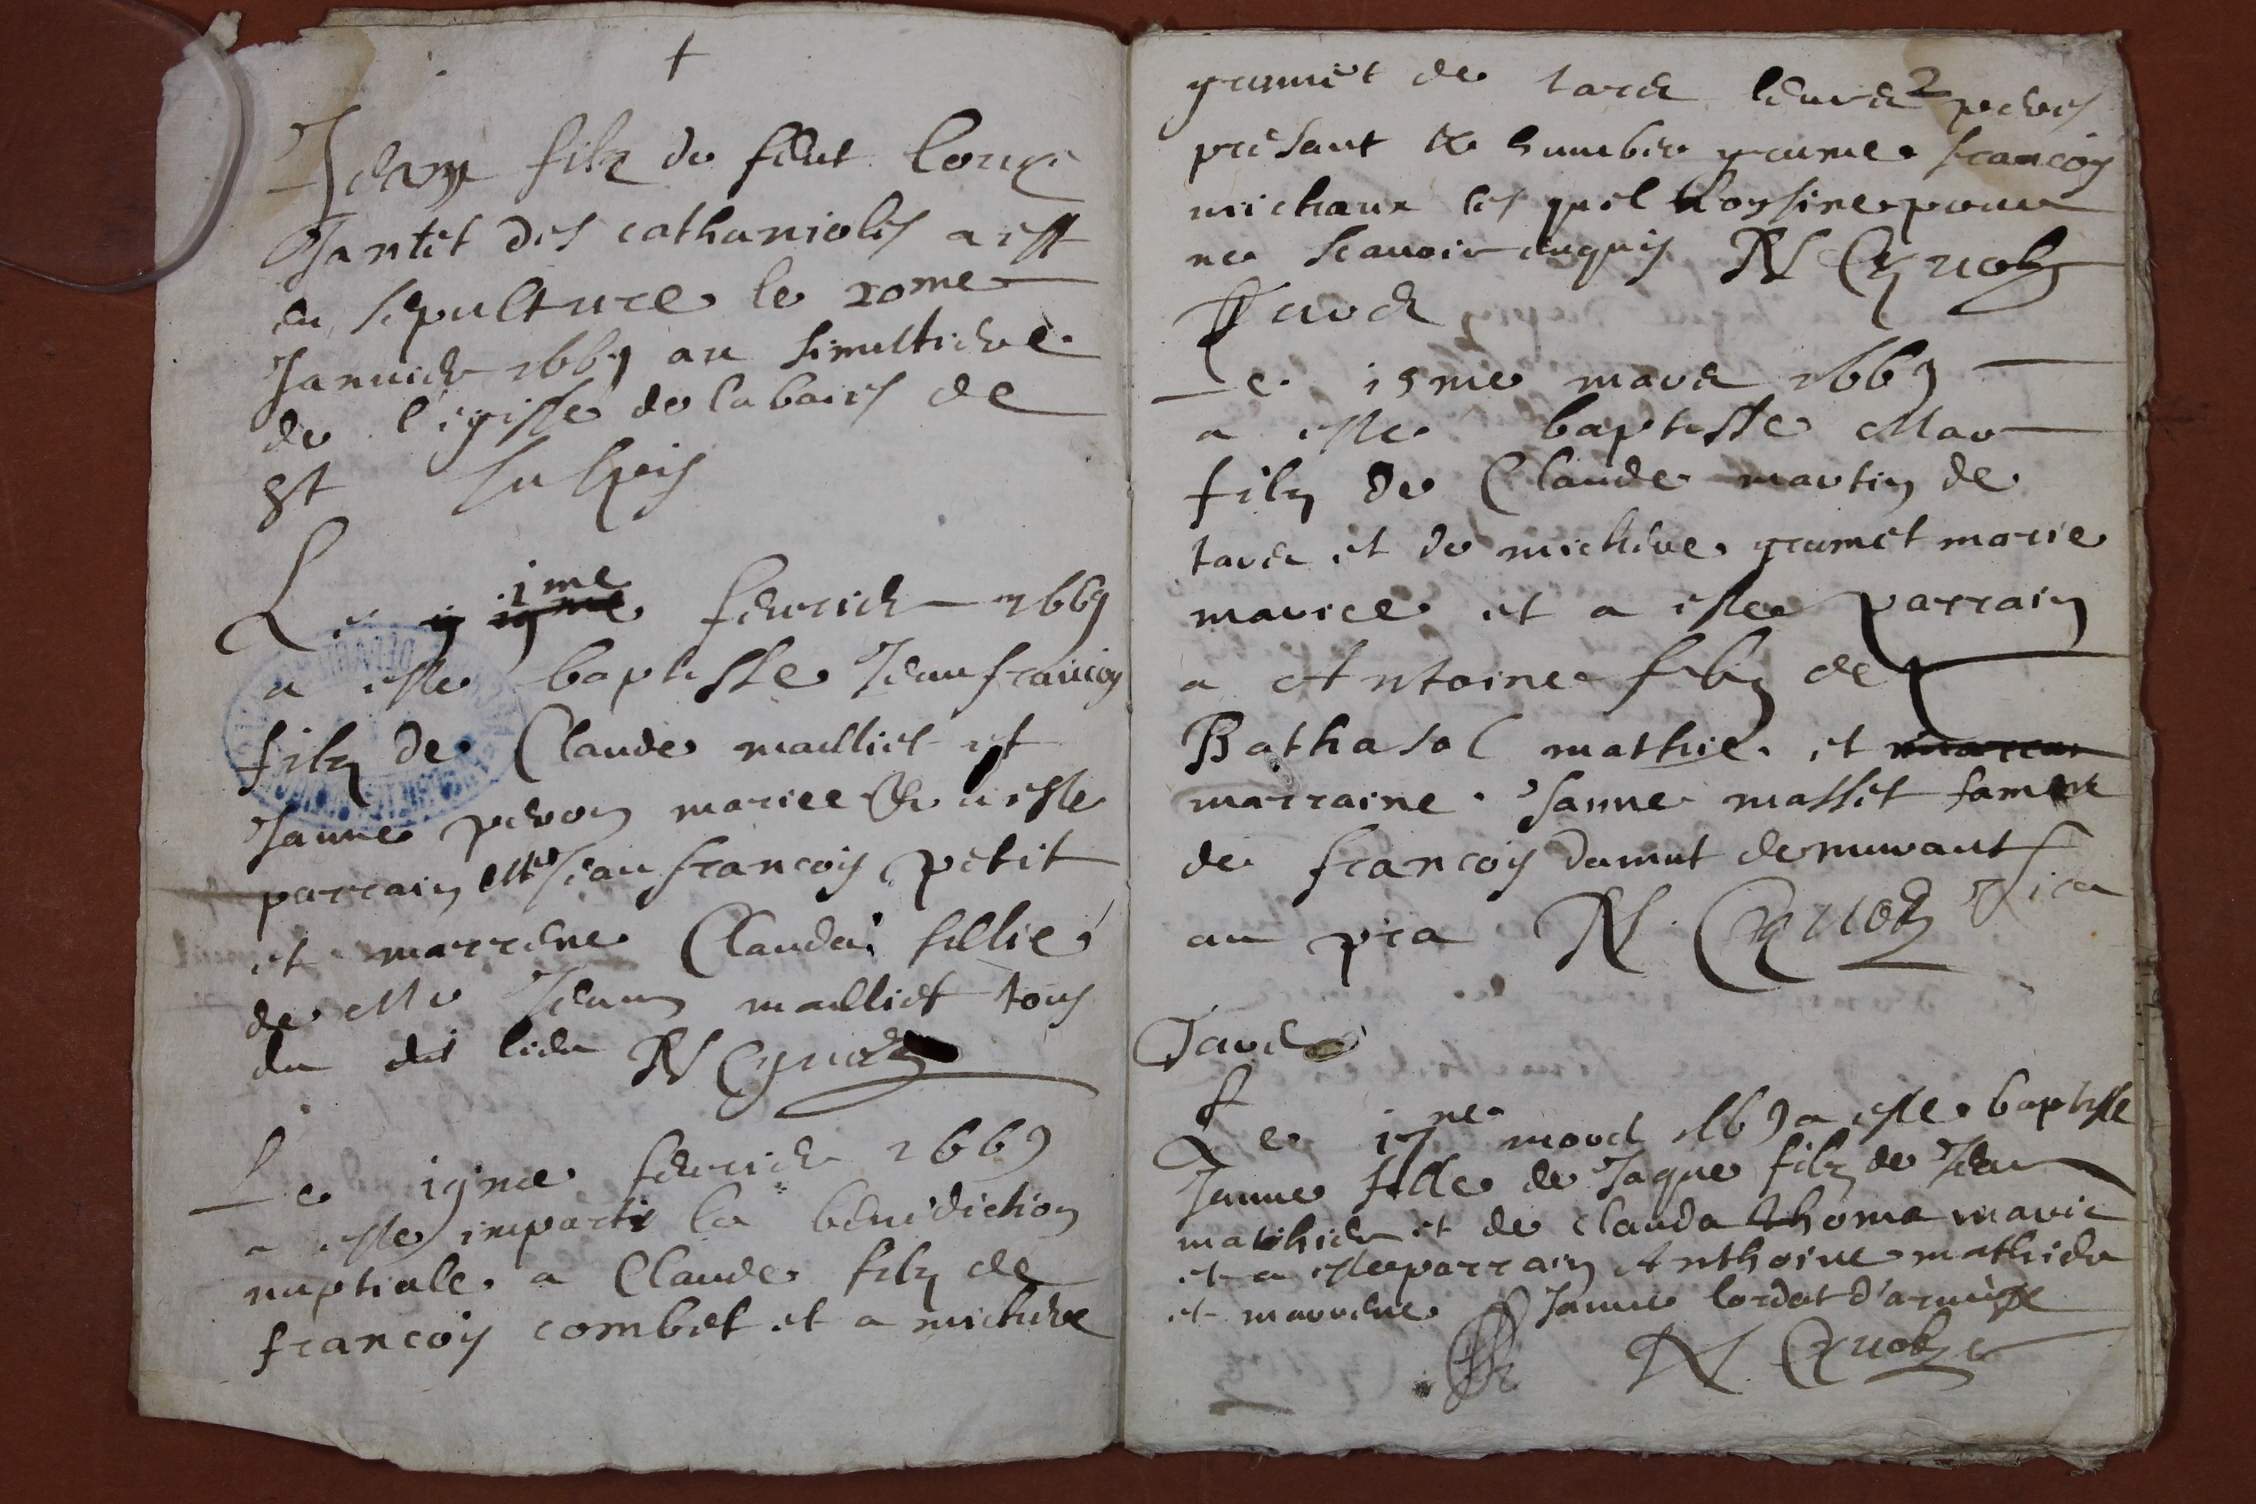 †
Jean filz de feut Louys
Jantet des cathanioles a est
en sepulture le 20me
Januier 1669 au simistiere
de l'eglisse de labaies de
St Sulpis
Le j me feurier 1669
a este baptisse Jean francoy
filz de Claude mailliet et
Janne peron mariee & a este
parrain Mre Jean francoys petit
et marrene Clauda fillie
de Mre Jean mailliet tous
du dit lieu N Cynod
Le 19me feurier 1669
a este imparti la benediction
nuptiale a Claude filz de
francoys combet et a michiere
grumet de tarer leurs 2 peres
presant & humber grume francoy
michaux les quel non sine pour
ne scauoir enquis N Cynod
Tarer
Le 15me mars 1669
a este baptisse Mar
filz de Claude martin de
tarer et de michere grumet marie
mariee et a este parrain
a Antoine filz de
Bathasal mathie et
marraine Janne masset famme
de francoys dumut demurant
au pra N Cynod
Tarer
Le 17me mars 1669 a este baptisse
Janne fille de Jaque filz de Jean
mathieu et de clauda thoma marie
et a este parrain Anthoine mathieu
et marrene Janne lordat d'aranise
N Cynod